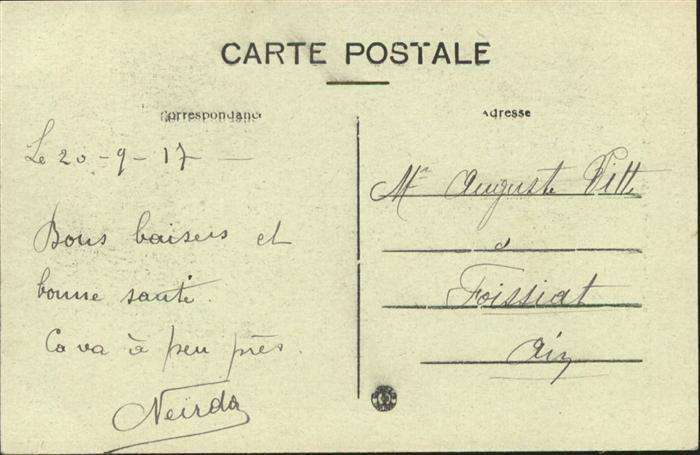 CARTE POSTALE
Correspondance
Le 20-9-17
Bons baisers et
bonne santé.
Ca va à peu près.
Neirda
Adresse
Mr Auguste Vitte
à
Foissiat
Ain